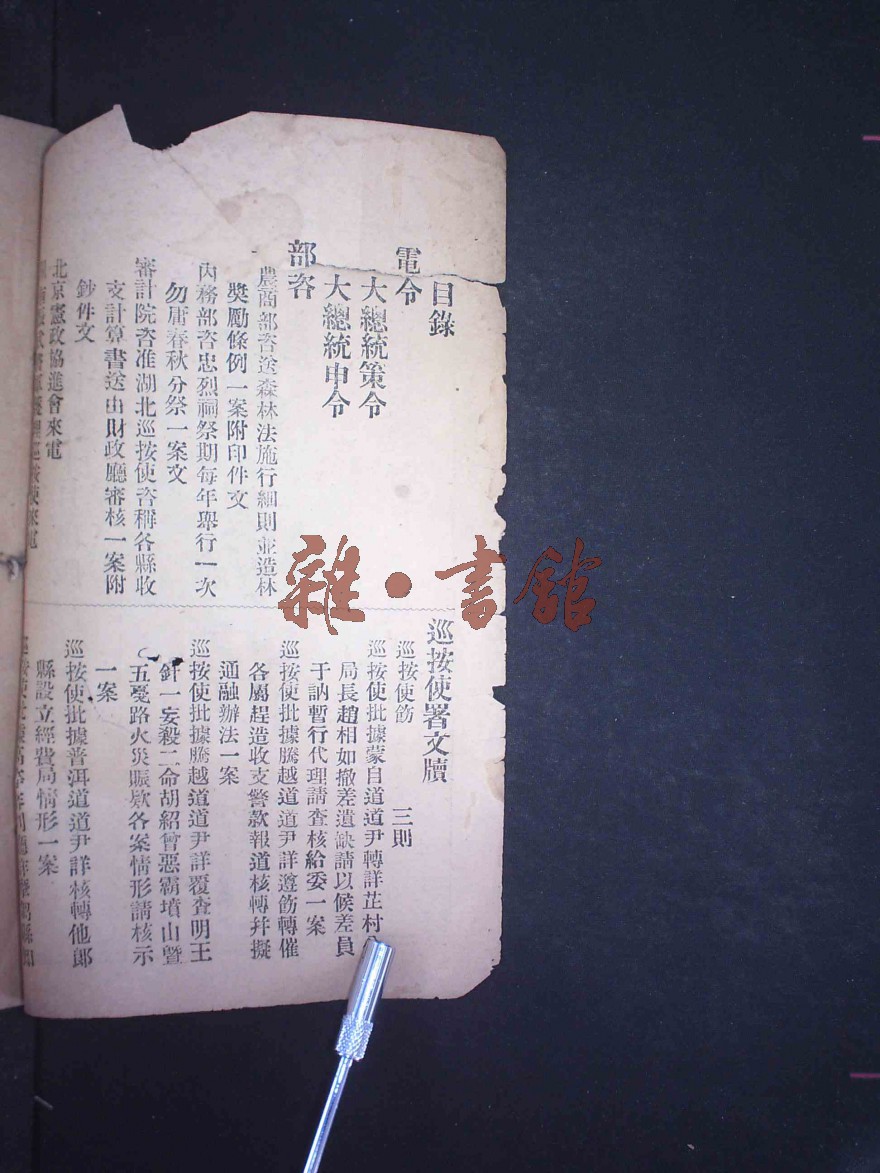 目錄
電令
大總統策令
大總統申令
部咨
農商部咨送森林法施行細則並造林
獎勵條例一案附印件文
內務部咨忠烈祠祭期每年舉行一次
勿庸春秋分祭一案文
審計院咨准湖北巡按使咨稱各縣收
支計算書送由財政廳審核一案附
鈔件文
北京憲政協進會來電
巡按使來電
巡按使署文牘
巡按使飭 三則
巡按使批據蒙自道道尹轉詳芷村
局長趙相如撤差遺缺請以候差員
于訥暫行代理請查核給委一案
巡按使批據騰越道道尹詳遵飭轉催
各屬趕造收支警款報道核轉幷擬
通融辦法一案
巡按使批據騰越道道尹詳覆查明王
釬一妄殺二命胡紹曾惡霸墳山曁
五戞路火災賑欵各案情形請核示
一案
巡按使批據普洱道道尹詳核轉他郎
縣設立經費局情形一案
雜·書館